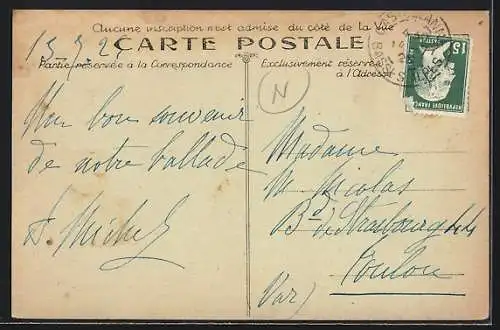 Aucune inscription n'est admise du côté de la Vue
CARTE POSTALE
Partie réservée à la Correspondance
Exclusivement réservée
à l'Adresse
N
15
REPUBLIQUE FRANÇAISE
Un bon souvenir
de notre ballade
Michel
Madame
Nicolas
Bd de Strasbourg
Toulon
(Var)